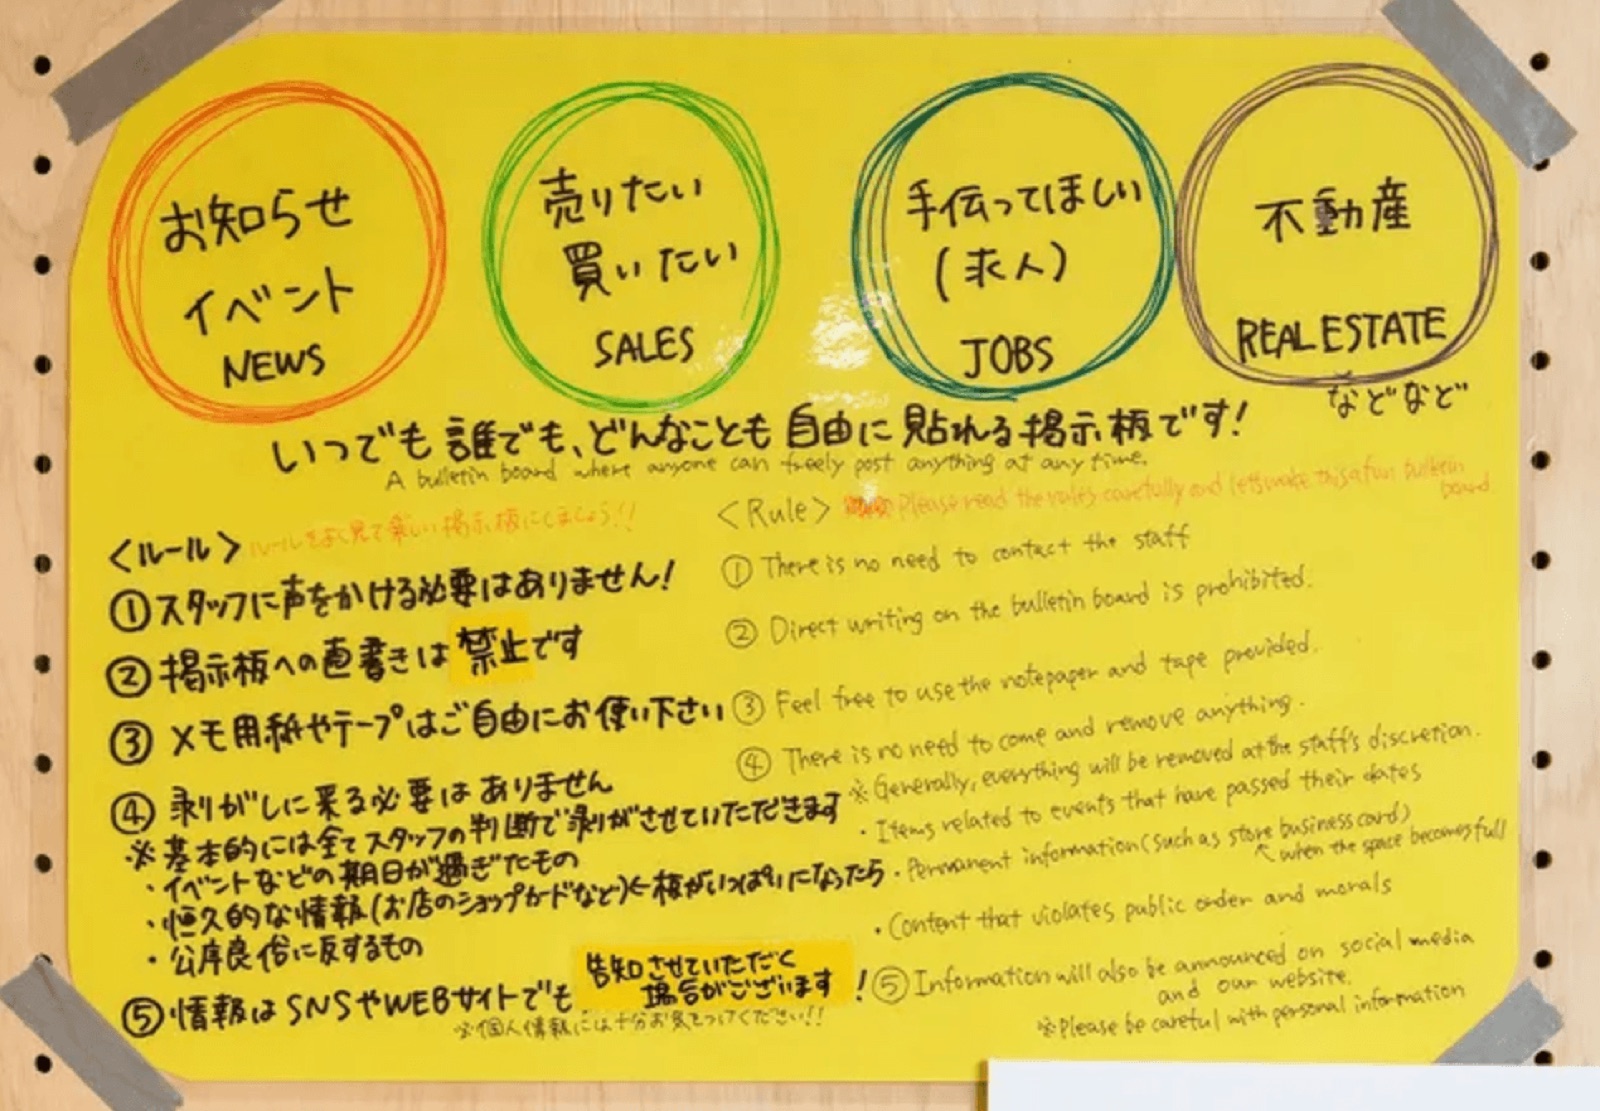 お知らせ
イベント
NEWS
売りたい
買いたい
SALES
手伝ってほしい
(求人)
JOBS
不動産
REAL ESTATE
などなど
いつでも誰でも、どんなことも自由に貼れる掲示板です!
A bulletin board where anyone can freely post anything at any time.
<ルール> ルールをよく見て楽しい掲示板にしましょう!!
①スタッフに声をかける必要はありません!
②掲示板への直書きは禁止です
③メモ用紙やテープはご自由にお使い下さい
④剥がしに来る必要はありません
※基本的には全てスタッフの判断で剥がさせていただきます
・イベントなどの期日が過ぎたもの
・恒久的な情報(お店のショップカードなど)←板がいっぱいになったら
・公序良俗に反するもの
⑤情報はSNSやWEBサイトでも告知させていただく
場合がございます!
※個人情報には十分お気をつけてください!!
<Rule> Please read the rules carefully and let's make this a fun bulletin
board
①There is no need to contact the staff
②Direct writing on the bulletin board is prohibited.
③Feel free to use the notepaper and tape provided.
④There is no need to come and remove anything.
※Generally, everything will be removed at the staff's discretion.
・Items related to events that have passed their dates
・Permanent information (such as store business card)
↖when the space becomes full
・Content that violates public order and morals
⑤Information will also be announced on social media
and our website.
※Please be careful with personal information